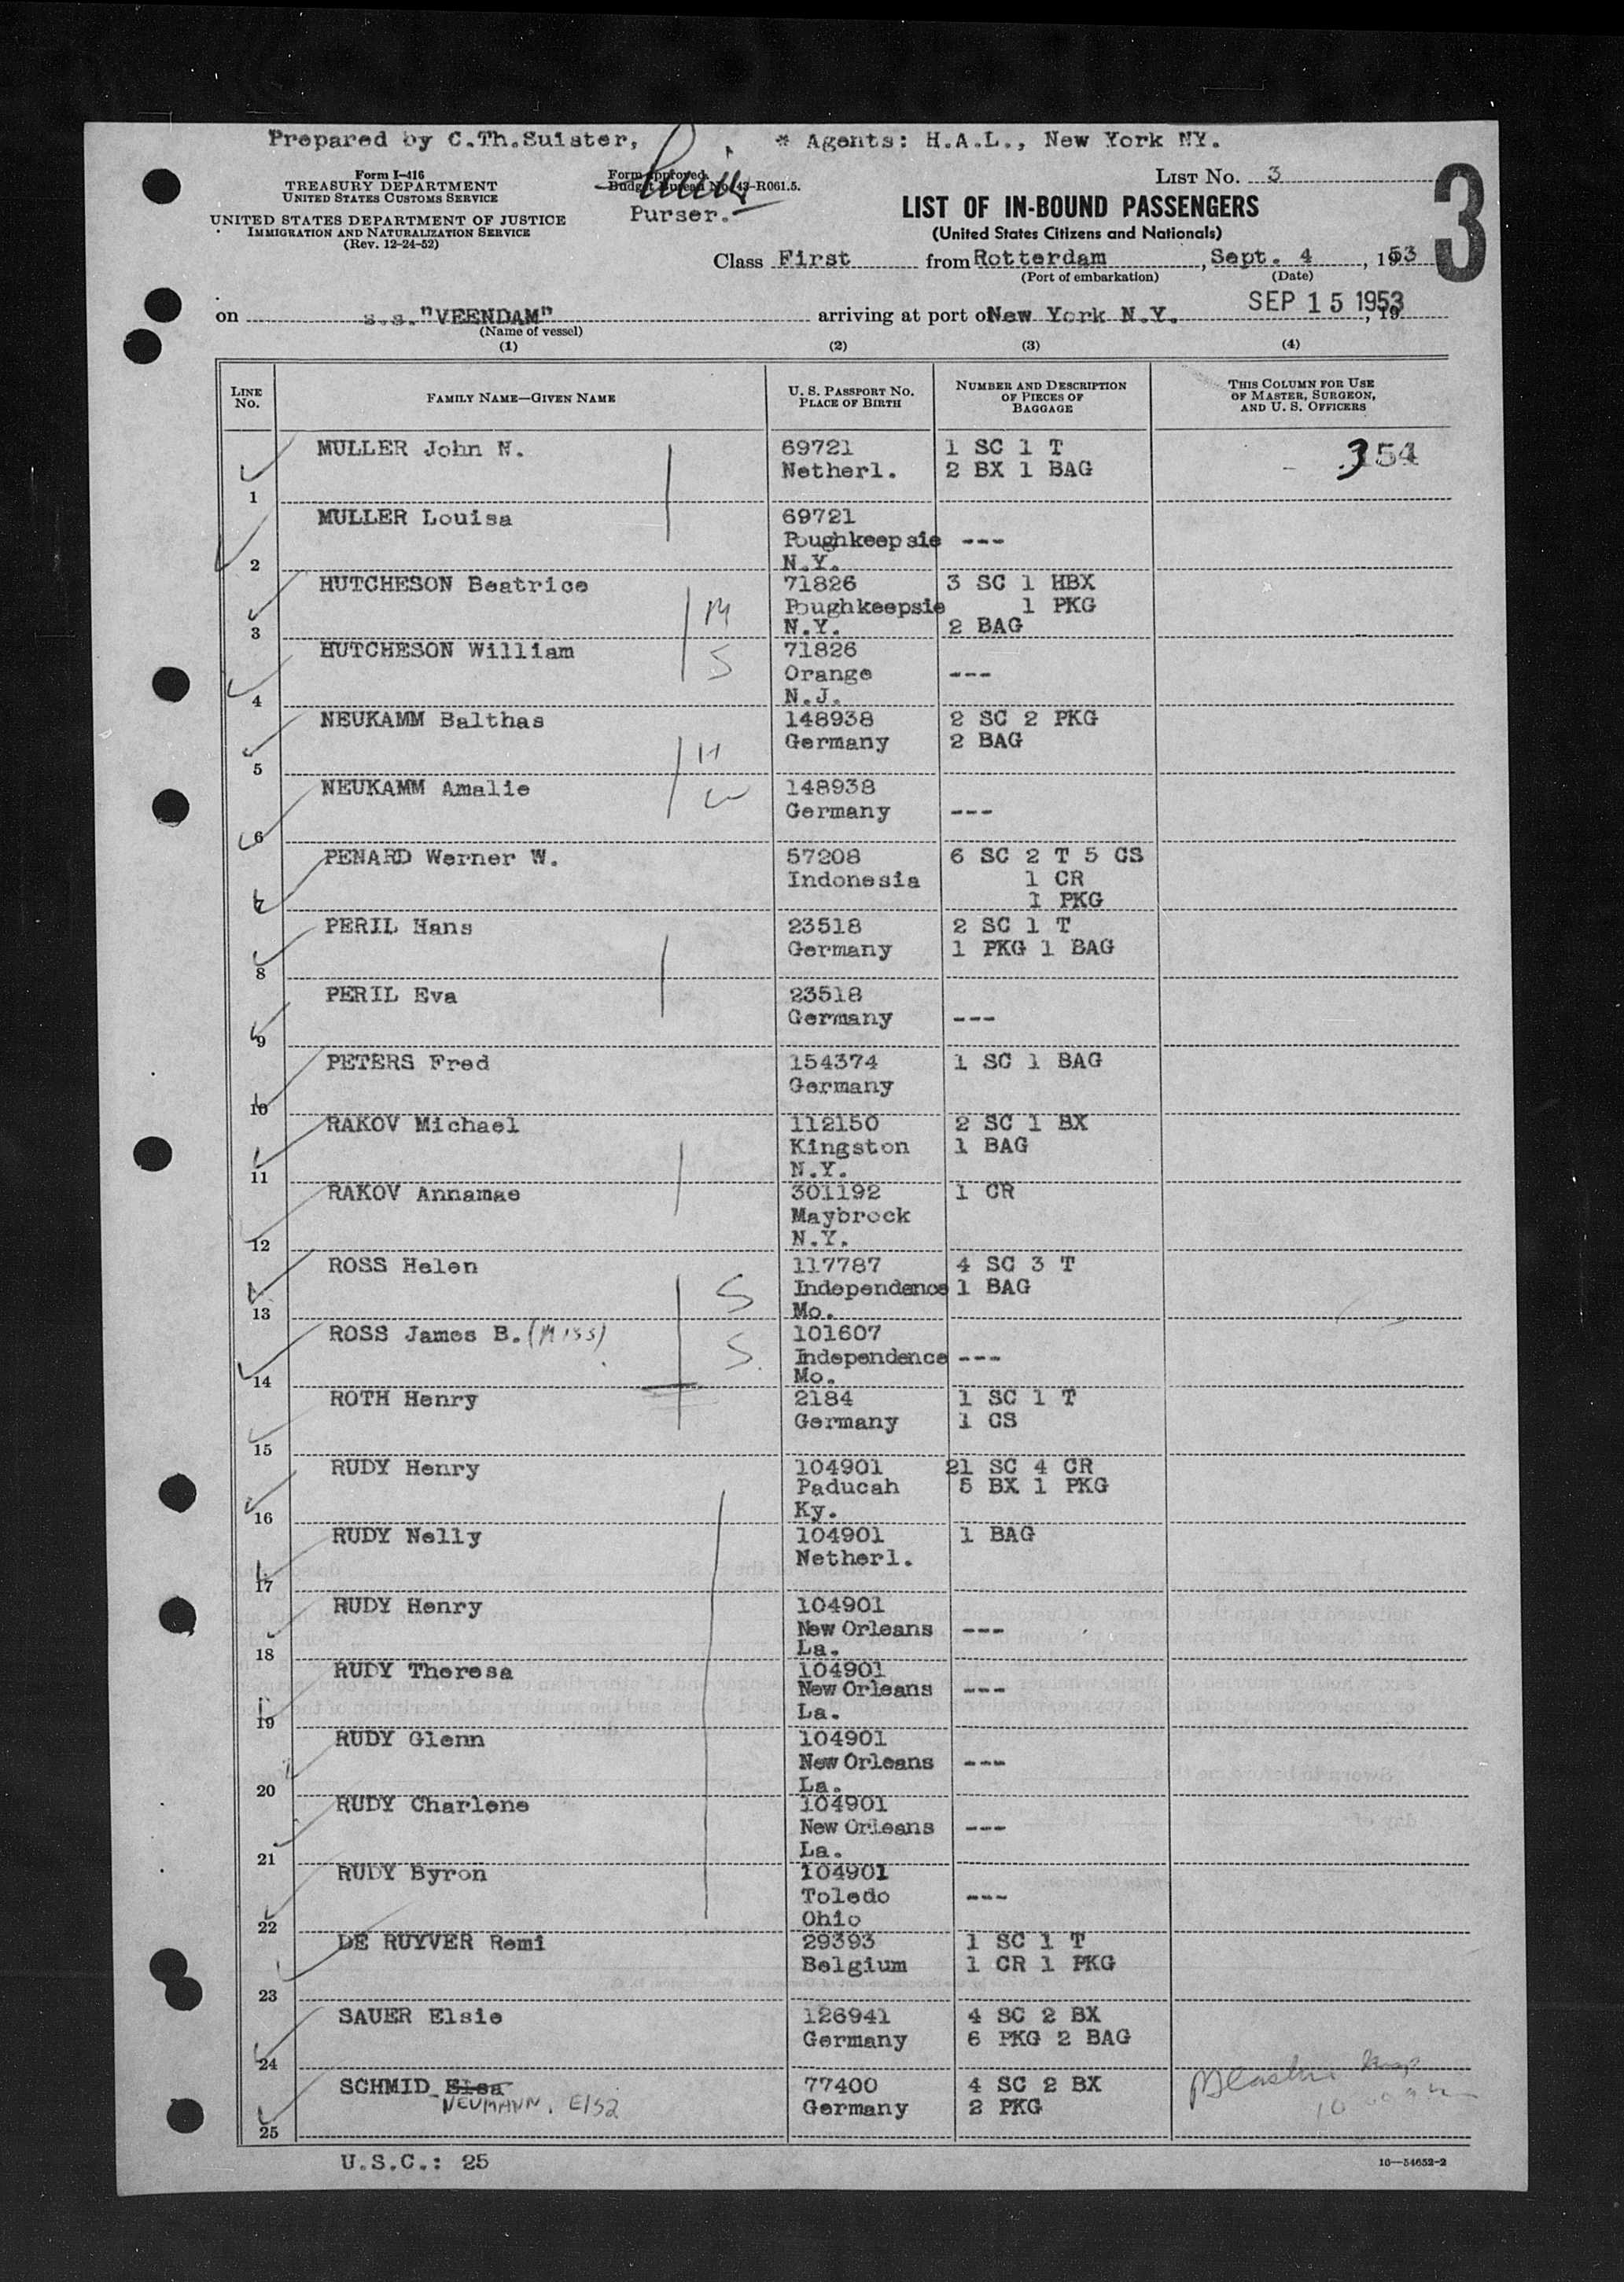 Prepared by C.Th.Suister, * Agents: H.A.L., New York NY.
Form I-416
TREASURY DEPARTMENT
UNITED STATES CUSTOMS SERVICE
UNITED STATES DEPARTMENT OF JUSTICE
IMMIGRATION AND NATURALIZATION SERVICE
(Rev. 12-24-52)
Form approved.
Budget Bureau No. 43-R061.5.
Purser.
LIST NO. 3
3
LIST OF IN-BOUND PASSENGERS
(United States Citizens and Nationals)
Class First from Rotterdam, Sept. 4, 1953
(Port of embarkation) (Date)
on s.s."VEENDAM" arriving at port of New York N.Y. SEP 15 1953, 19
(Name of vessel)
(1) (2) (3) (4)
LINE No. FAMILY NAME—GIVEN NAME U. S. PASSPORT NO. PLACE OF BIRTH NUMBER AND DESCRIPTION OF PIECES OF BAGGAGE THIS COLUMN FOR USE OF MASTER, SURGEON, AND U. S. OFFICERS
MULLER John N. 69721 1 SC 1 T 354
Netherl. 2 BX 1 BAG
1
MULLER Louisa 69721
Poughkeepsie ---
2 N.Y.
HUTCHESON Beatrice 71826 3 SC 1 HBX
M Poughkeepsie 1 PKG
3 N.Y. 2 BAG
HUTCHESON William 71826
S Orange ---
4 N.J.
NEUKAMM Balthas 148938 2 SC 2 PKG
H Germany 2 BAG
5
NEUKAMM Amalie 148938
W Germany ---
6
PENARD Werner W. 57208 6 SC 2 T 5 CS
Indonesia 1 CR
7 1 PKG
PERIL Hans 23518 2 SC 1 T
Germany 1 PKG 1 BAG
8
PERIL Eva 23518
Germany ---
9
PETERS Fred 154374 1 SC 1 BAG
Germany
10
RAKOV Michael 112150 2 SC 1 BX
Kingston 1 BAG
11 N.Y.
RAKOV Annamae 301192 1 CR
Maybrock
12 N.Y.
ROSS Helen 117787 4 SC 3 T
S Independence 1 BAG
13 Mo.
ROSS James B. (MISS) 101607
S. Independence ---
14 Mo.
ROTH Henry 2184 1 SC 1 T
Germany 1 CS
15
RUDY Henry 104901 21 SC 4 CR
Paducah 5 BX 1 PKG
16 Ky.
RUDY Nelly 104901 1 BAG
Netherl.
17
RUDY Henry 104901
New Orleans ---
18 La.
RUDY Theresa 104901
New Orleans ---
19 La.
RUDY Glenn 104901
New Orleans ---
20 La.
RUDY Charlene 104901
New Orleans ---
21 La.
RUDY Byron 104901
Toledo ---
22 Ohio
DE RUYVER Remi 29393 1 SC 1 T
Belgium 1 CR 1 PKG
23
SAUER Elsie 126941 4 SC 2 BX
Germany 6 PKG 2 BAG
24
SCHMID Elsa 77400 4 SC 2 BX
NEUMANN, Elsa Germany 2 PKG
25
U.S.C.: 25 16—54652-2